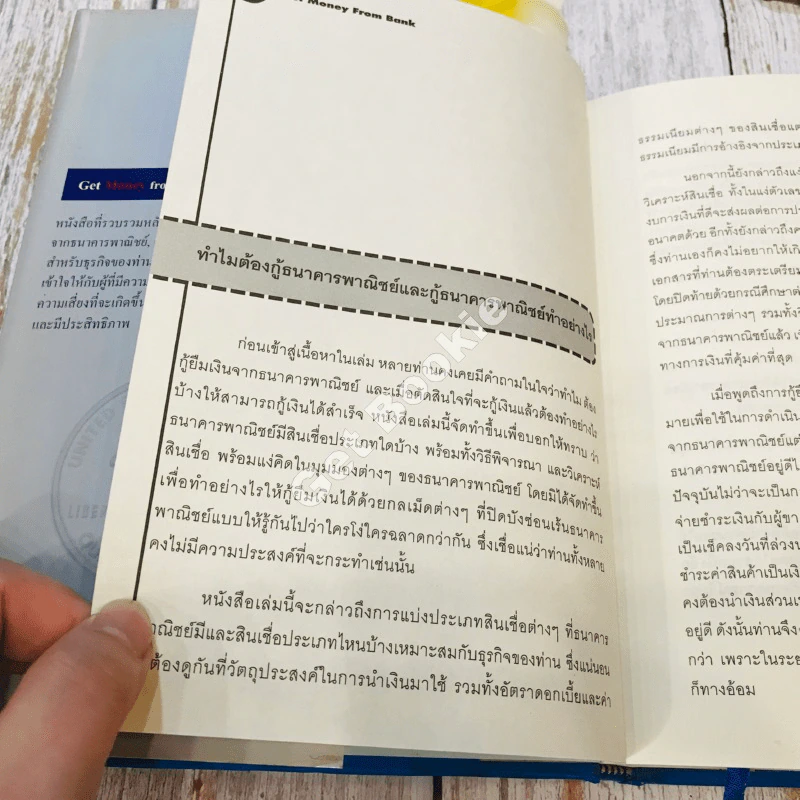 Money From Bank
Get Money fro
หนังสือที่รวบรวมหลั
จากธนาคารพาณิชย์,
สำหรับธุรกิจของท่าน
เข้าใจให้กับผู้ที่มีความ
ความเสี่ยงที่จะเกิดขึ้น
และมีประสิทธิภาพ
UNITED
LIBER
ทำไมต้องกู้ธนาคารพาณิชย์และกู้ธนาคารพาณิชย์ทำอย่างไร
ก่อนเข้าสู่เนื้อหาในเล่ม หลายท่านคงเคยมีคำถามในใจว่าทำไม ต้อง
กู้ยืมเงินจากธนาคารพาณิชย์ และเมื่อตัดสินใจที่จะกู้เงินแล้วต้องทำอย่างไร
บ้างให้สามารถกู้เงินได้สำเร็จ หนังสือเล่มนี้จัดทำขึ้นเพื่อบอกให้ทราบ ว่า
ธนาคารพาณิชย์มีสินเชื่อประเภทใดบ้าง พร้อมทั้งวิธีพิจารณา และวิเคราะห์
สินเชื่อ พร้อมแง่คิดในมุมมองต่างๆ ของธนาคารพาณิชย์ โดยมิได้จัดทำขึ้น
เพื่อทำอย่างไรให้กู้ยืมเงินได้ด้วยกลเม็ดต่างๆ ที่ปิดบังซ่อนเร้นธนาคาร
พาณิชย์แบบให้รู้กันไปว่าใครโง่ใครฉลาดกว่ากัน ซึ่งเชื่อแน่ว่าท่านทั้งหลาย
คงไม่มีความประสงค์ที่จะกระทำเช่นนั้น
หนังสือเล่มนี้จะกล่าวถึงการแบ่งประเภทสินเชื่อต่างๆ ที่ธนาคาร
าณิชย์มีและสินเชื่อประเภทไหนบ้างเหมาะสมกับธุรกิจของท่าน ซึ่งแน่นอน
ต้องดูกันที่วัตถุประสงค์ในการนำเงินมาใช้ รวมทั้งอัตราดอกเบี้ยและค่า
Get Bookie
ธรรมเนียมต่างๆ ของสินเชื่อแต
ธรรมเนียมมีการอ้างอิงจากประเภ
นอกจากนี้ยังกล่าวถึงแง่
วิเคราะห์สินเชื่อ ทั้งในแง่ตัวเลข
งบการเงินที่ดีจะส่งผลต่อการป
อนาคตด้วย อีกทั้งยังกล่าวถึงค
ซึ่งท่านเองก็คงไม่อยากให้เกิ
เอกสารที่ท่านต้องตระเตรียม
โดยปิดท้ายด้วยกรณีศึกษาต่
ประมาณการต่างๆ รวมทั้งวิ
จากธนาคารพาณิชย์แล้ว เ
ทางการเงินที่คุ้มค่าที่สุด
เมื่อพูดถึงการกู้ยื
มายเพื่อใช้ในการดำเนิน
จากธนาคารพาณิชย์แต่
ธนาคารพาณิชย์อยู่ดีไม่
ปัจจุบันไม่ว่าจะเป็นก
จ่ายชำระเงินกับผู้ขา
เป็นเช็คลงวันที่ล่วงห
ชำระค่าสินค้าเป็นเงิ
คงต้องนำเงินส่วนเ
อยู่ดี ดังนั้นท่านจึง
กว่า เพราะในระย
ก็ทางอ้อม